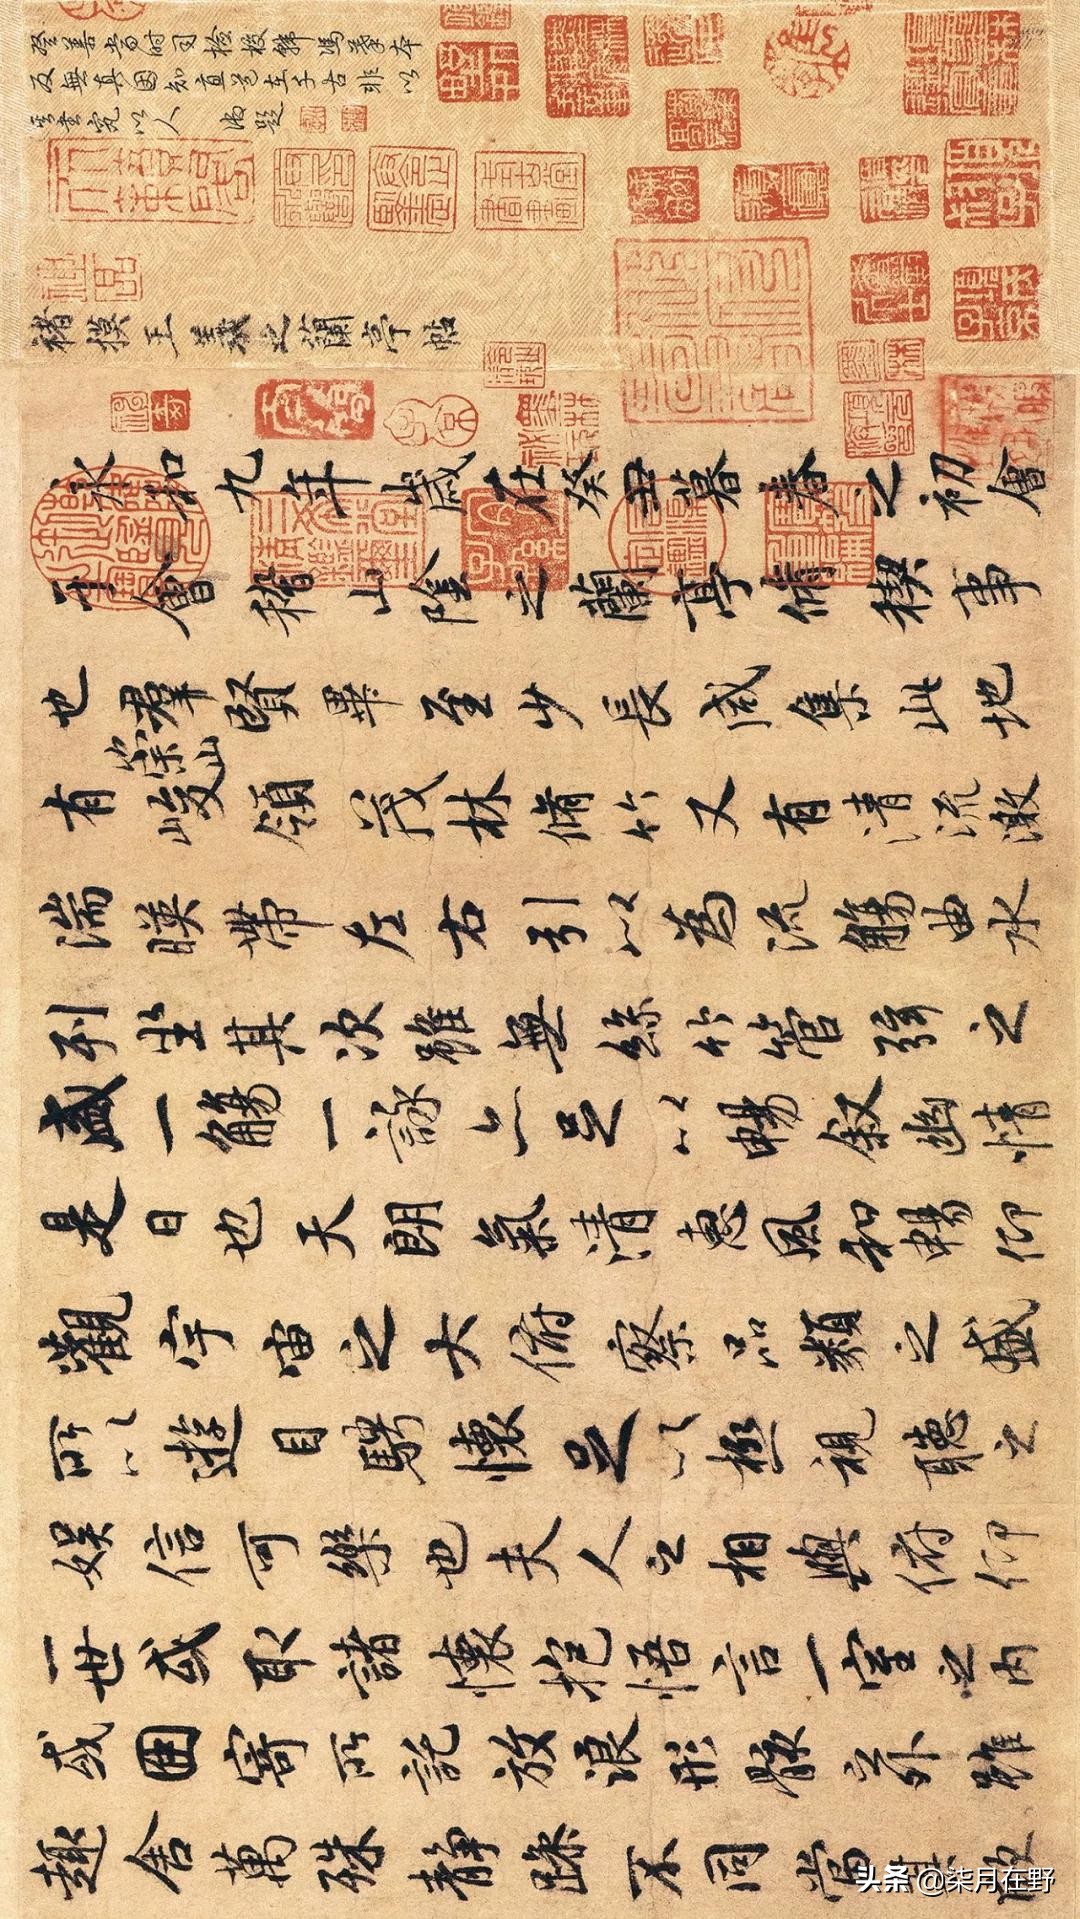 登善當時司檢校
御題
褚摸王羲之蘭亭帖
永和九年歲在癸丑暮春之初會
于會稽山陰之蘭亭脩稧事
也羣賢畢至少長咸集此地
有崇山峻領茂林脩竹又有清流激
湍暎帶左右引以為流觴曲水
列坐其次雖無絲竹管弦之
盛一觴一詠亦足以暢敘幽情
是日也天朗氣清惠風和暢仰
觀宇宙之大俯察品類之盛
所以遊目騁懷足以極視聽之
娛信可樂也夫人之相與俯仰
一世或取諸懷抱悟言一室之內
或因寄所託放浪形骸之外雖
趣舍萬殊靜躁不同當其欣
头条 @柒月在野